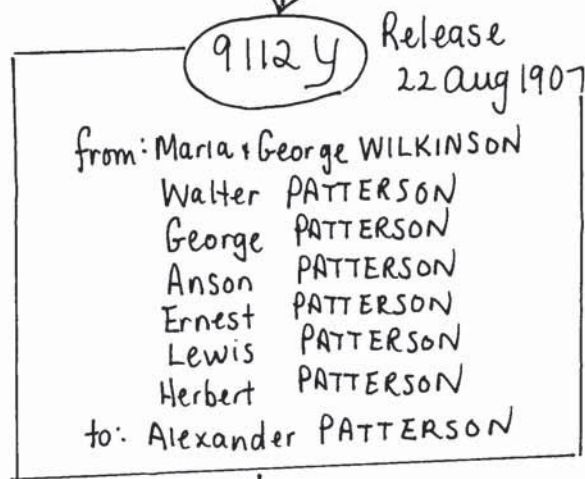 9112 Y Release
22 Aug 1907
from: Maria & George WILKINSON
Walter PATTERSON
George PATTERSON
Anson PATTERSON
Ernest PATTERSON
Lewis PATTERSON
Herbert PATTERSON
to: Alexander PATTERSON